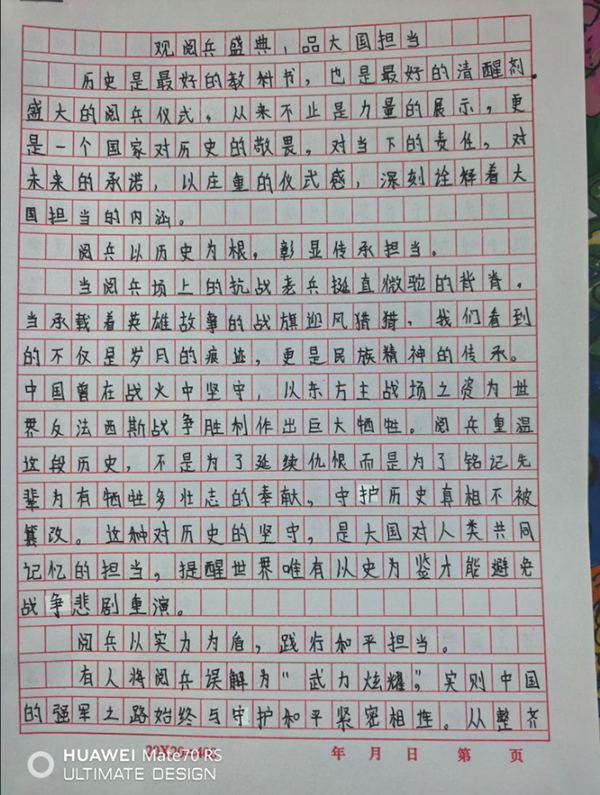 观阅兵盛典,品大国担当
历史是最好的教科书,也是最好的清醒剂.
盛大的阅兵仪式,从来不止是力量的展示,更
是一个国家对历史的敬畏,对当下的责任,对
未来的承诺,以庄重的仪式感,深刻诠释着大
国担当的内涵。
阅兵以历史为根,彰显传承担当。
当阅兵场上的抗战老兵挺直微驼的背脊,
当承载着英雄故事的战旗迎风猎猎,我们看到
的不仅是岁月的痕迹,更是民族精神的传承。
中国曾在战火中坚守,以东方主战场之姿为世
界反法西斯战争胜利作出巨大牺牲。阅兵重温
这段历史,不是为了延续仇恨而是为了铭记先
辈为有牺牲多壮志的奉献,守护历史真相不被
篡改。这种对历史的坚守,是大国对人类共同
记忆的担当,提醒世界唯有以史为鉴才能避免
战争悲剧重演。
阅兵以实力为盾,践行和平担当。
有人将阅兵误解为“武力炫耀”,实则中国
的强军之路始终与守护和平紧密相连。从整齐
年 月 日 第 页
HUAWEI Mate70 RS
ULTIMATE DESIGN